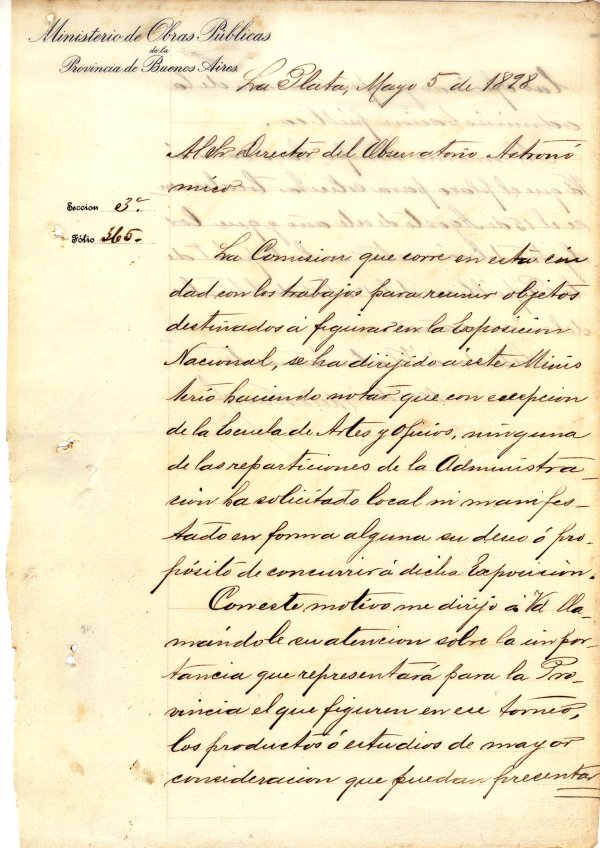 Ministerio de Obras Públicas
de la
Provincia de Buenos Aires
La Plata, Mayo 5 de 1898
Al Sr Director del Observatorio Astronó
mico
Seccion 3ª
Fólio 365.
La Comision que corre en esta ciu
dad con los trabajos para reunir objetos
destinados á figurar en la Exposicion
Nacional, se ha dirijido á este Minis
terio haciendo notar que con escepcion
de la Escuela de Artes y Oficios, ninguna
de las reparticiones de la Administra-
cion ha solicitado local ni manifes-
tado en forma alguna su deseo ó pro-
pósito de concurrir á dicha Exposicion.
Con este motivo me dirijo á Vd lla-
mándole su atencion sobre la impor-
tancia que representará para la Pro-
vincia el que figuren en ese torneo,
los productos ó estudios de mayor
consideracion que puedan presentar